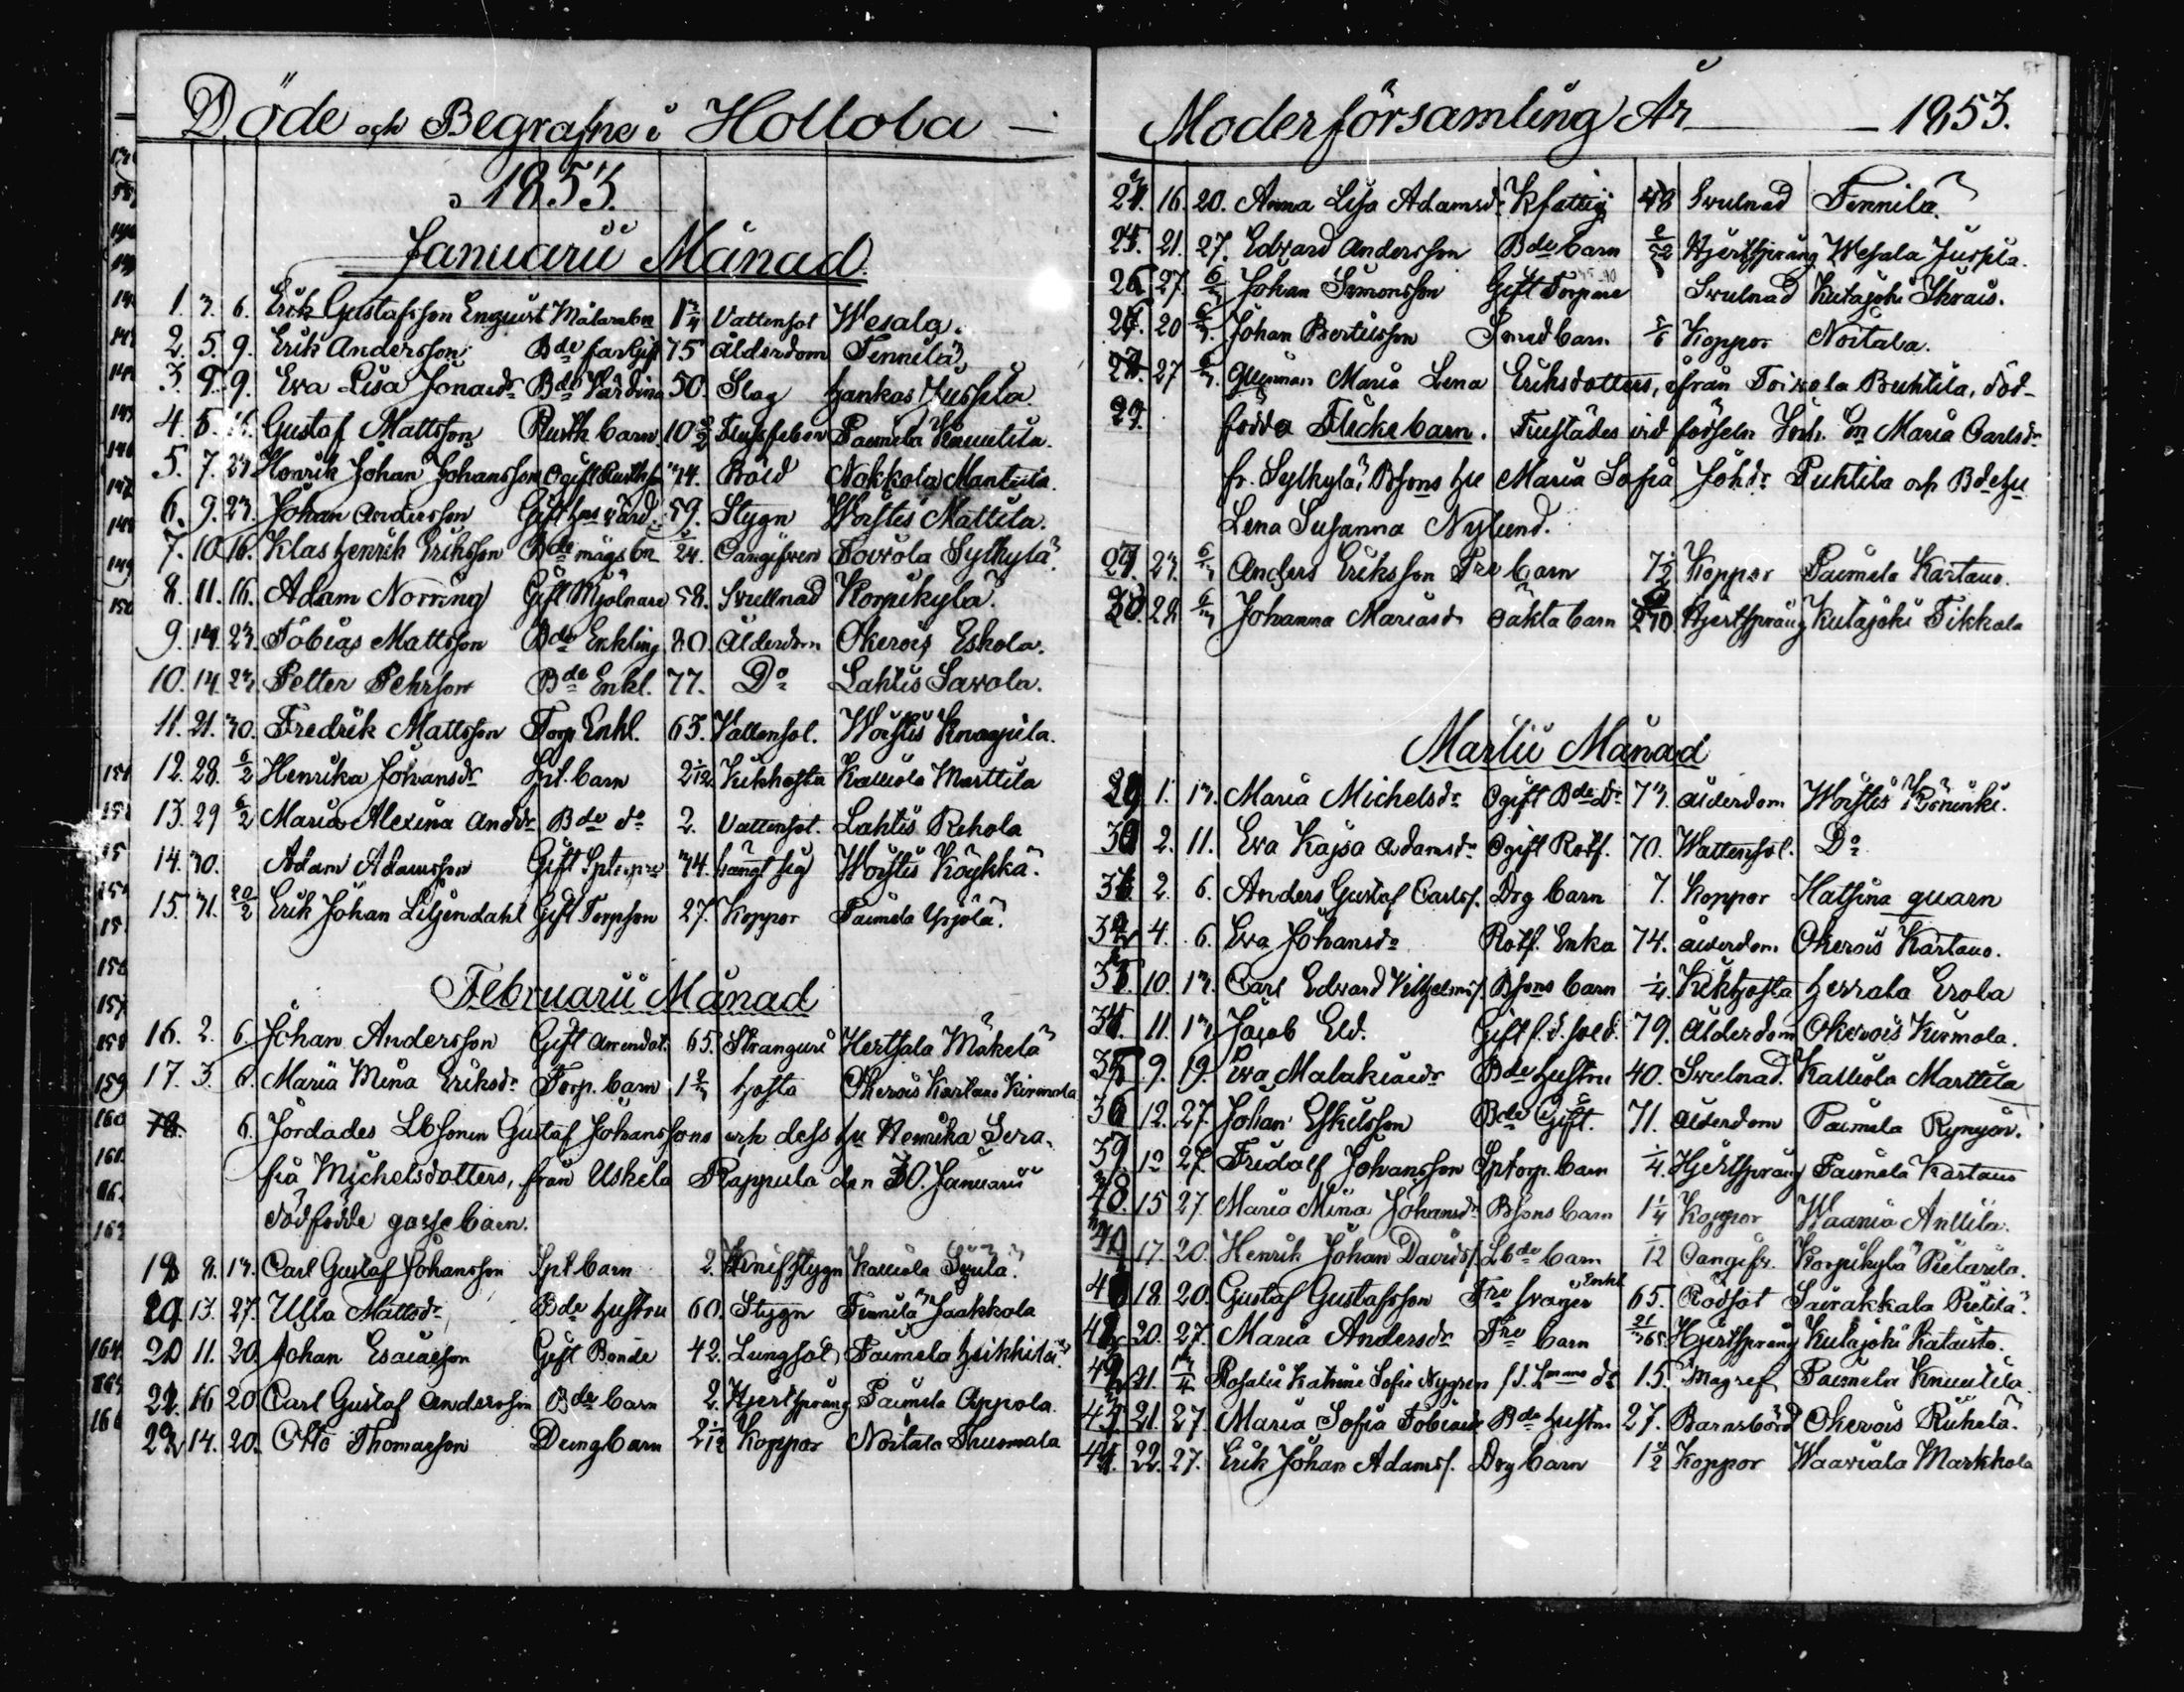 Döde och Begrafne i Hollola —
1853.
Januarii Månad
1. 3. 6. Erik Gustafsson Enqvist Målarebn 1 3/4 Vattensot Wesala.
2. 5. 9. Erik Andersson Bde far Gift 75 Ålderdom Tennilä
3. 9. 9. Eva Lisa Jonaedr Bde Värdina 50. Slag Hankas Jussila
4. 5. 16. Gustaf Mattsson Rusth barn 10 Paimela Knuutila.
5. 7. 23 Henrik Johan Johansson Ogift 34. Bråd Nokkola Manttila
6. 9. 23. Johan Andersson Gift 59. Stygn Woistis Mattila.
7. 10. 16. Klas Henrik Eriksson Bde mågs bn 1/24. Oangifven Toivola Sylkylä
8. 11. 16. Adam Norring Gift Mjölnare 58. Svullnad Korpikylä.
9. 14. 23. Tobias Mattsson Bde Enkling 80. Ålderdom Okerois Eskola.
10. 14. 23. Petter Pehrson Bde Enkl. 77. Do Lahtis Sawola.
11. 21. 30. Fredrik Mattsson Torp Enkl. 63. Vattensot. Woistis Knaapila.
12. 28. 6/2 Henrika Johansdr Spt. barn 2 1/12 Kikhosta Kalliola Marttila
13. 29 6/2 Maria Alexina Andsdr Bde do 2. Vattensot. Lahtis Rekola
14. 30. Adam Adamsson Gift 34. hängt sig Woistis Köykkä.
15. 31. 20/2 Erik Johan Liljendahl Gift Torpson 27. Koppor Paimela Yrjölä.
Februarii Månad
16. 2. 6. Johan Andersson Gift Arrendat. 65. Stranguri Hertsala Mäkelä
17. 3. 6. Maria Mina Eriksdr Torp. barn 1 Hosta Okerois Kartano Kirmola
18. 6. Jordades Lbsonen Gustaf Johanssons och dess hu Henrika Sera-
fia Michelsdotters, från Uskela Rappula den 30. Januarii
dödfödde gossebarn.
18 8. 13. Carl Gustaf Johansson Spt barn 2. Knifstygn Kalliola
13. 27. Ulla Mattsdr Bde Hustru 60. Stygn Tennilä Jaakkola
20 11. 20. Johan Esaiaeson Gift Bonde 42. Lungsot Paimela Heikkilä
16 20. Carl Gustaf Andersson Bde barn 2. Hjertsprång Paimela Oppola.
14. 20. Otto Thomaeson Deingbarn 2 1/12 Koppor Noitala Tuomala
Moderförsamling År — 1853.
16. 20. Anna Lisa Adamsdr Kfattig 48 Svulnad Tennilä.
25. 21. 27. Edvard Andersson Bde barn Hjertsprång Wesala Jussila.
26. 27. 6/3 Johan Simonsson Gift Torpare Svulnad Kutajoki Skrais.
20 6/3. Johan Bertilsson Smed barn Koppor Noitala.
27 6/3. Maria Lena Eriksdotters, från Toivola Buhtila, död-
29. födda Flickebarn. Tustädes vid födseln Jordg. En Maria Carlsdr
fr. Sylkylä, Bsons hu Maria Sofia Johdr Puhtila och Bdehu
Lena Susanna Nylund.
23. 6/3 Anders Eriksson Fre barn 7 1/2 Koppor Paimela Kartano.
28. 6/3 Johanna Mariasdr oäkta barn Hjertsprång Kutajoki Tikkala
Martii Månad
29 1. 13. Maria Michelsdr Ogift Bde Dr 73. ålderdom Woistis Böninki.
30 2. 11. Eva Kajsa Adamsdr Ogift Rotf. 70. Wattensot. Do
2. 6. Anders Gustaf Carlss. Drg barn 7. Koppor Hatsina quarn
4. 6. Eva Johansdr Rotf. Enka 74. ålderdom Okerois Kartano.
10. 13. Carl Edvard Vilhelmss. Bsons barn 1/4. Kikhosta Herrala Erola
34. 11. 13 Jacob Eld. Gift f.d. sold. 79. Ålderdom Okerois Kirmola.
35 9. 19. Eva Malakiaedr Bde hustru 40. Svulnad. Kalliola Marttila
36 12. 27. Johan Eskelsson Bde Gift. 71. ålderdom Paimela Rynyön.
27. Fridolf Johansson Sptorp. barn 1/4. Hjertsprång Paimela Kartano
15 27 Maria Mina Johansdr Bsons barn 1 1/4 Koppor Waania Anttila.
17. 20. Henrik Johan Davids. Lbde barn 1/12 Oangifv. Korpikylä Pietarila.
18 20. Gustaf Gustafsson Fre svåger Enkl 65. Rödsot Sairakkala Pietilä.
20. 27. Maria Andersdr Fre barn 21/365. Hjertsprång Kutajoki Kataisto.
21. 13/4 Rosalie Katrine Sofie Nygren 15. Magref Paimela Knuutila.
43. 21. 27. Maria Sofia Tobiaedr Bde hustru 27. Barnsbörd Okerois Riihelä.
44. 22. 27. Erik Johan Adamss. Drg barn 1 1/2 Koppor Waaviala Markkola